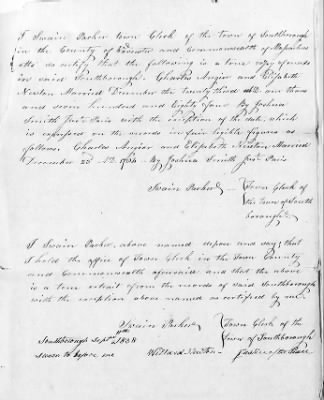 I Swain Parker town Clerk of the town of Southborough
in the County of Worcester and Commonwealth of Massachus
etts do certify that the following is a true copy of records
in said Southborough. Charles Angier and Elizabeth
Newton Married December the twenty third AD. one thou
sand seven hundred and Eighty four By Joshua
Smith Just. Pais with the exception of the date, which
is expressed on the records in fair legible figures as
follows. Charles Angier and Elizabeth Newton Married
December 23d AD. 1784 By Joshua Smith Just. Pais
Swain Parker Town Clerk of
the town of South
borough
I Swain Parker, above named depose and say that
I hold the office of Town Clerk in the Town County
and Commonwealth aforesaid and that the above
is a true extract from the records of said Southborough
with the exception above named as certified by me.
Swain Parker Town Clerk of the
town of Southborough
Southborough Sept 1838
sworn to before me Willard Newton Justice of the Peace